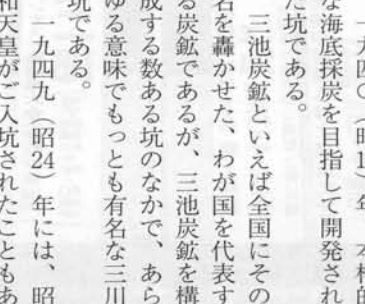 一九四〇（昭1）年、本格的
な海底採炭を目指して開発され
た坑である。
三池炭鉱といえば全国にその
名を轟かせた、わが国を代表す
る炭鉱であるが、三池炭鉱を構
成する数ある坑のなかで、あら
ゆる意味でもっとも有名な三川
坑である。
一九四九（昭24）年には、昭
和天皇がご入坑されたこともあ